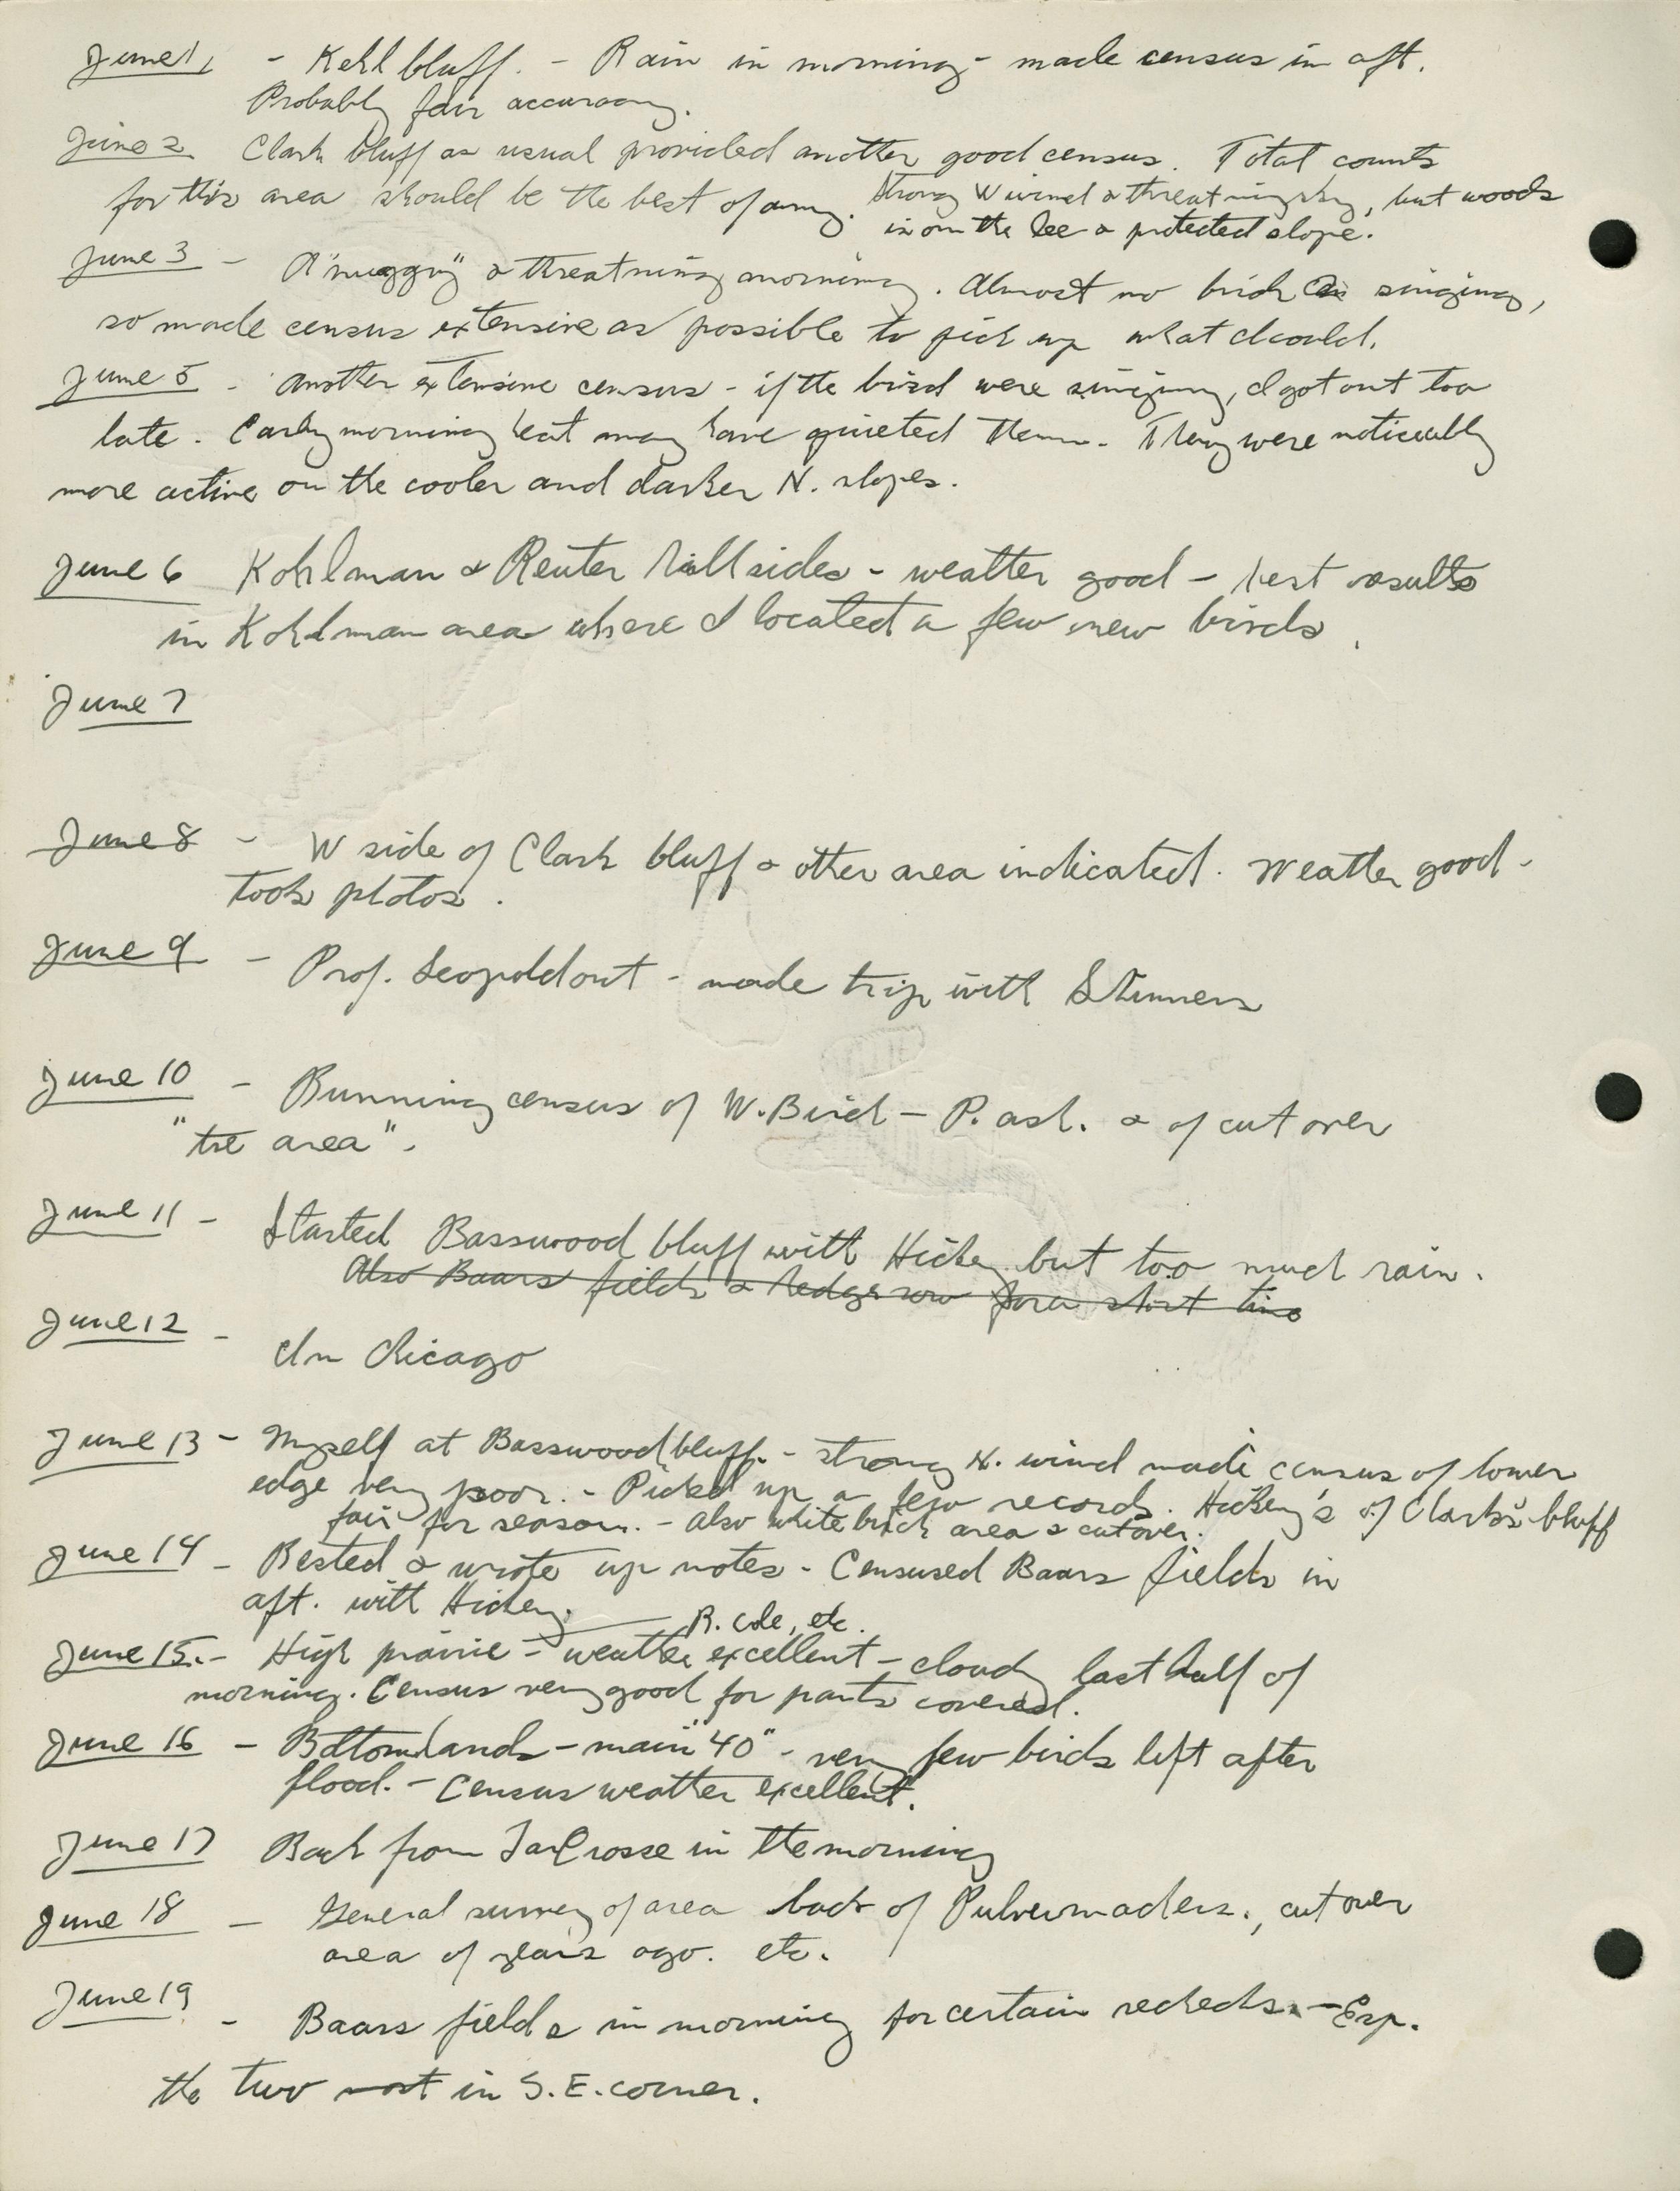 June 1, - Kehl bluff. - Rain in morning - made census in aft.
Probably fair accuracy.
June 2 Clark bluff as usual provided another good census. Total counts
for this area should be the best of any. Strong W wind & threatning sky, but woods
is on the lee & protected slope.
June 3 - A "muggy" & threatning morning. Almost no birds singing,
so made census extensive as possible to pick up what I could.
June 5 - Another extensive census - if the bird were singing, I got out too
late. Early morning heat may have quieted them. They were noticeably
more active on the cooler and darker N. slopes.
June 6 Kohlman & Reuter hillsides - weather good - best results
in Kohlman area where I located a few new birds.
June 7
June 8 - W side of Clark bluff & other area indicated. Weather good -
took photos.
June 9 - Prof. Leopold out - made trip with
June 10 - Running census of W. Birch - P. ash. & of cut over
"tit area".
June 11 - Started Basswood bluff with Hickey but too much rain.
Also Baars fields & hedge row for a short time
June 12 - In Chicago
June 13 - Myself at Basswood bluff. - strong N. wind made census of lower
edge very poor. - Picked up a few records. Hickey's of Clark's bluff
fair for season. - Also white birch area & cutover.
June 14 - Rested & wrote up notes - Censused Baars fields in
aft. with Hickey. R. Cole, etc.
June 15. - High prairie - weather excellent - cloudy last half of
morning. Census very good for parts covered.
June 16 - Bottomlands - main "40" - very few birds left after
flood. - Census weather excellent.
June 17 Back from LaCrosse in the morning
June 18 - General survey of area back of Pulvermachers., cut over
area of years ago. etc.
June 19 - Baars fields in morning for certain rechecks. - Esp.
the two most in S.E. corner.